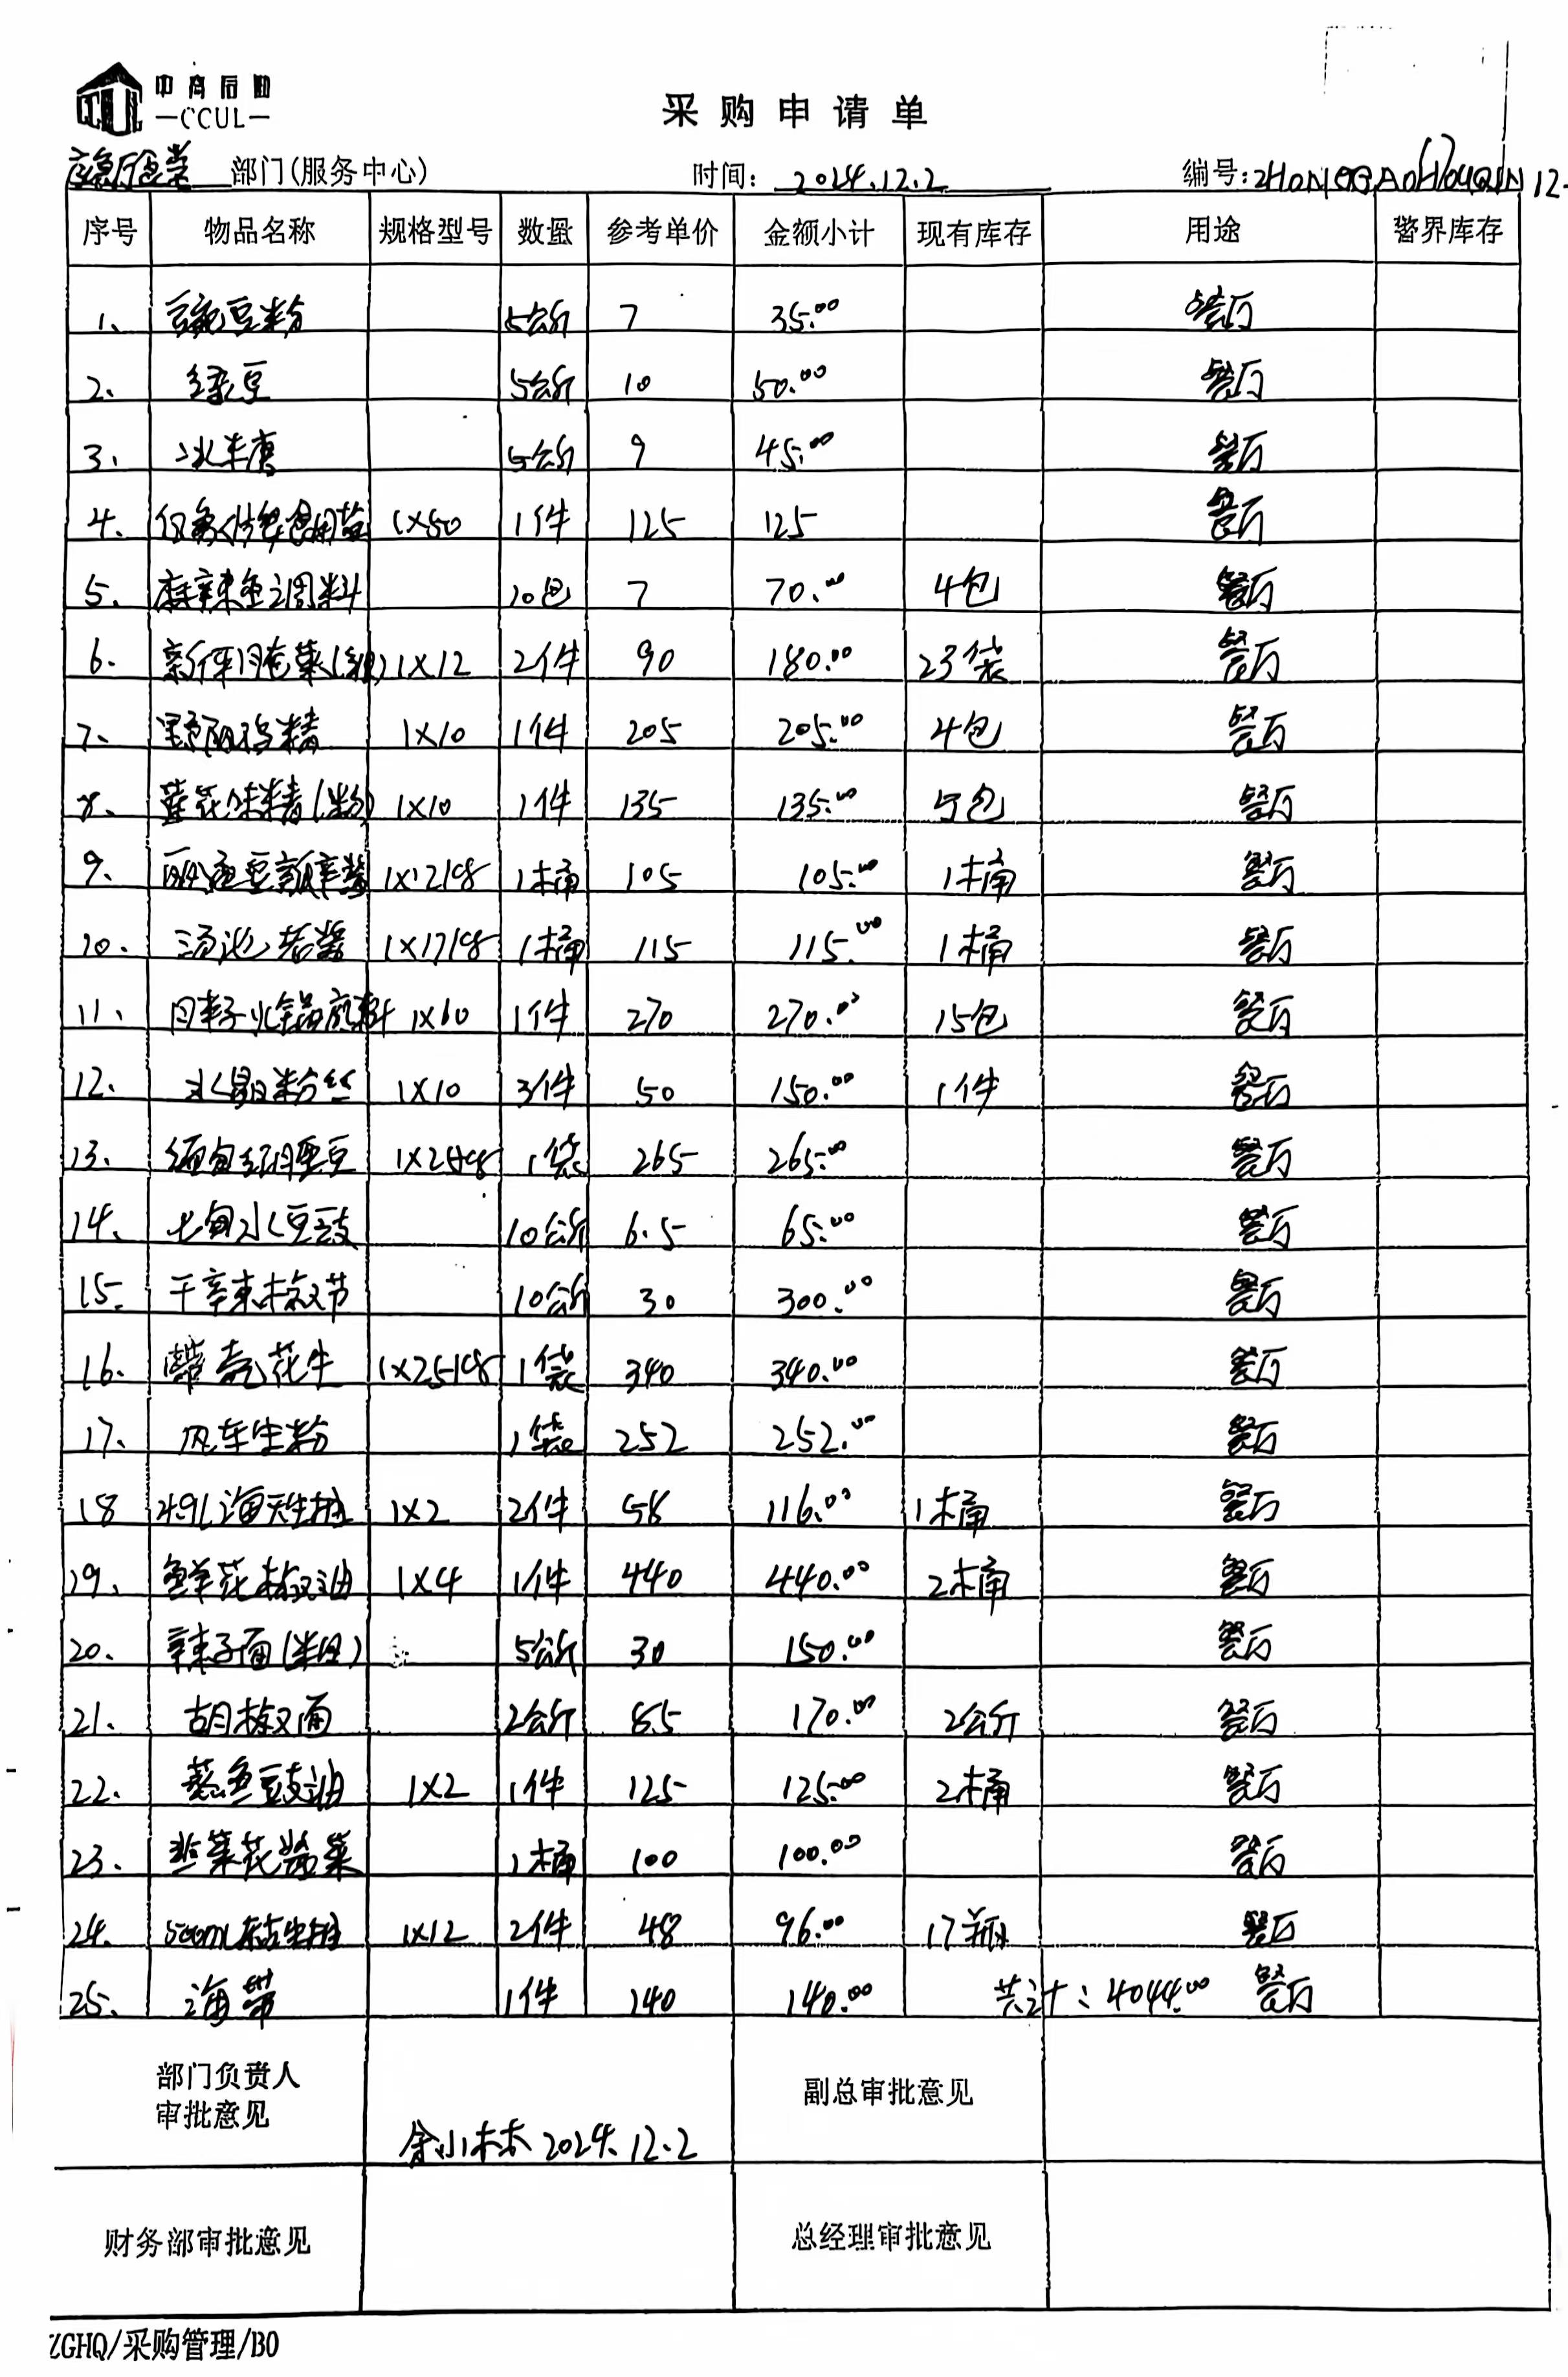 中高后勤
CCUL
采购申请单
应急厅食堂 部门(服务中心) 时间: 2024.12.2 编号:
序号 物品名称 规格型号 数量 参考单价 金额小计 现有库存 用途 警界库存
1、 豌豆粉 5公斤 7 35.00 餐厅
2、 绿豆 5公斤 10 50.00 餐厅
3、 冰糖 5公斤 9 45.00 餐厅
4、 食用盐 1×50 1件 125 125 餐厅
5、 麻辣鱼调料 10包 7 70.00 4包 餐厅
6、 新平腌菜 1×12 2件 90 180.00 23袋 餐厅
7、 鸡精 1×10 1件 205 205.00 4包 餐厅
8、 莲花味精(粉) 1×10 1件 135 135.00 5包 餐厅
9、 豆瓣酱 1×12kg 1桶 105 105.00 1桶 餐厅
10、 汤池老酱 1×17kg 1桶 115 115.00 1桶 餐厅
11、 丹丹火锅底料 1×60 1件 270 270.00 15包 餐厅
12、 水晶粉丝 1×10 3件 50 150.00 1件 餐厅
13、 红腰豆 1×25kg 1袋 265 265.00 餐厅
14、 七甸水豆豉 10公斤 6.5 65.00 餐厅
15、 干辣椒节 10公斤 30 300.00 餐厅
16、 带壳花生 1×25kg 1袋 340 340.00 餐厅
17、 风车生粉 1袋 252 252.00 餐厅
18 4.9L海天生抽 1×2 2件 58 116.00 1桶 餐厅
19、 鲜花椒油 1×4 1件 440 440.00 2桶 餐厅
20、 辣子面(粗) 5公斤 30 150.00 餐厅
21、 胡椒面 2公斤 85 170.00 2公斤 餐厅
22、 蒸鱼豉油 1×2 1件 125 125.00 2桶 餐厅
23、 韭菜花酱菜 1桶 100 100.00 餐厅
24、 500ml东古生抽 1×12 2件 48 96.00 17瓶 餐厅
25、 海带 1件 140 140.00 共计：4044.00 餐厅
部门负责人
审批意见
余小林 2024.12.2
副总审批意见
财务部审批意见
总经理审批意见
ZGHQ/采购管理/B0